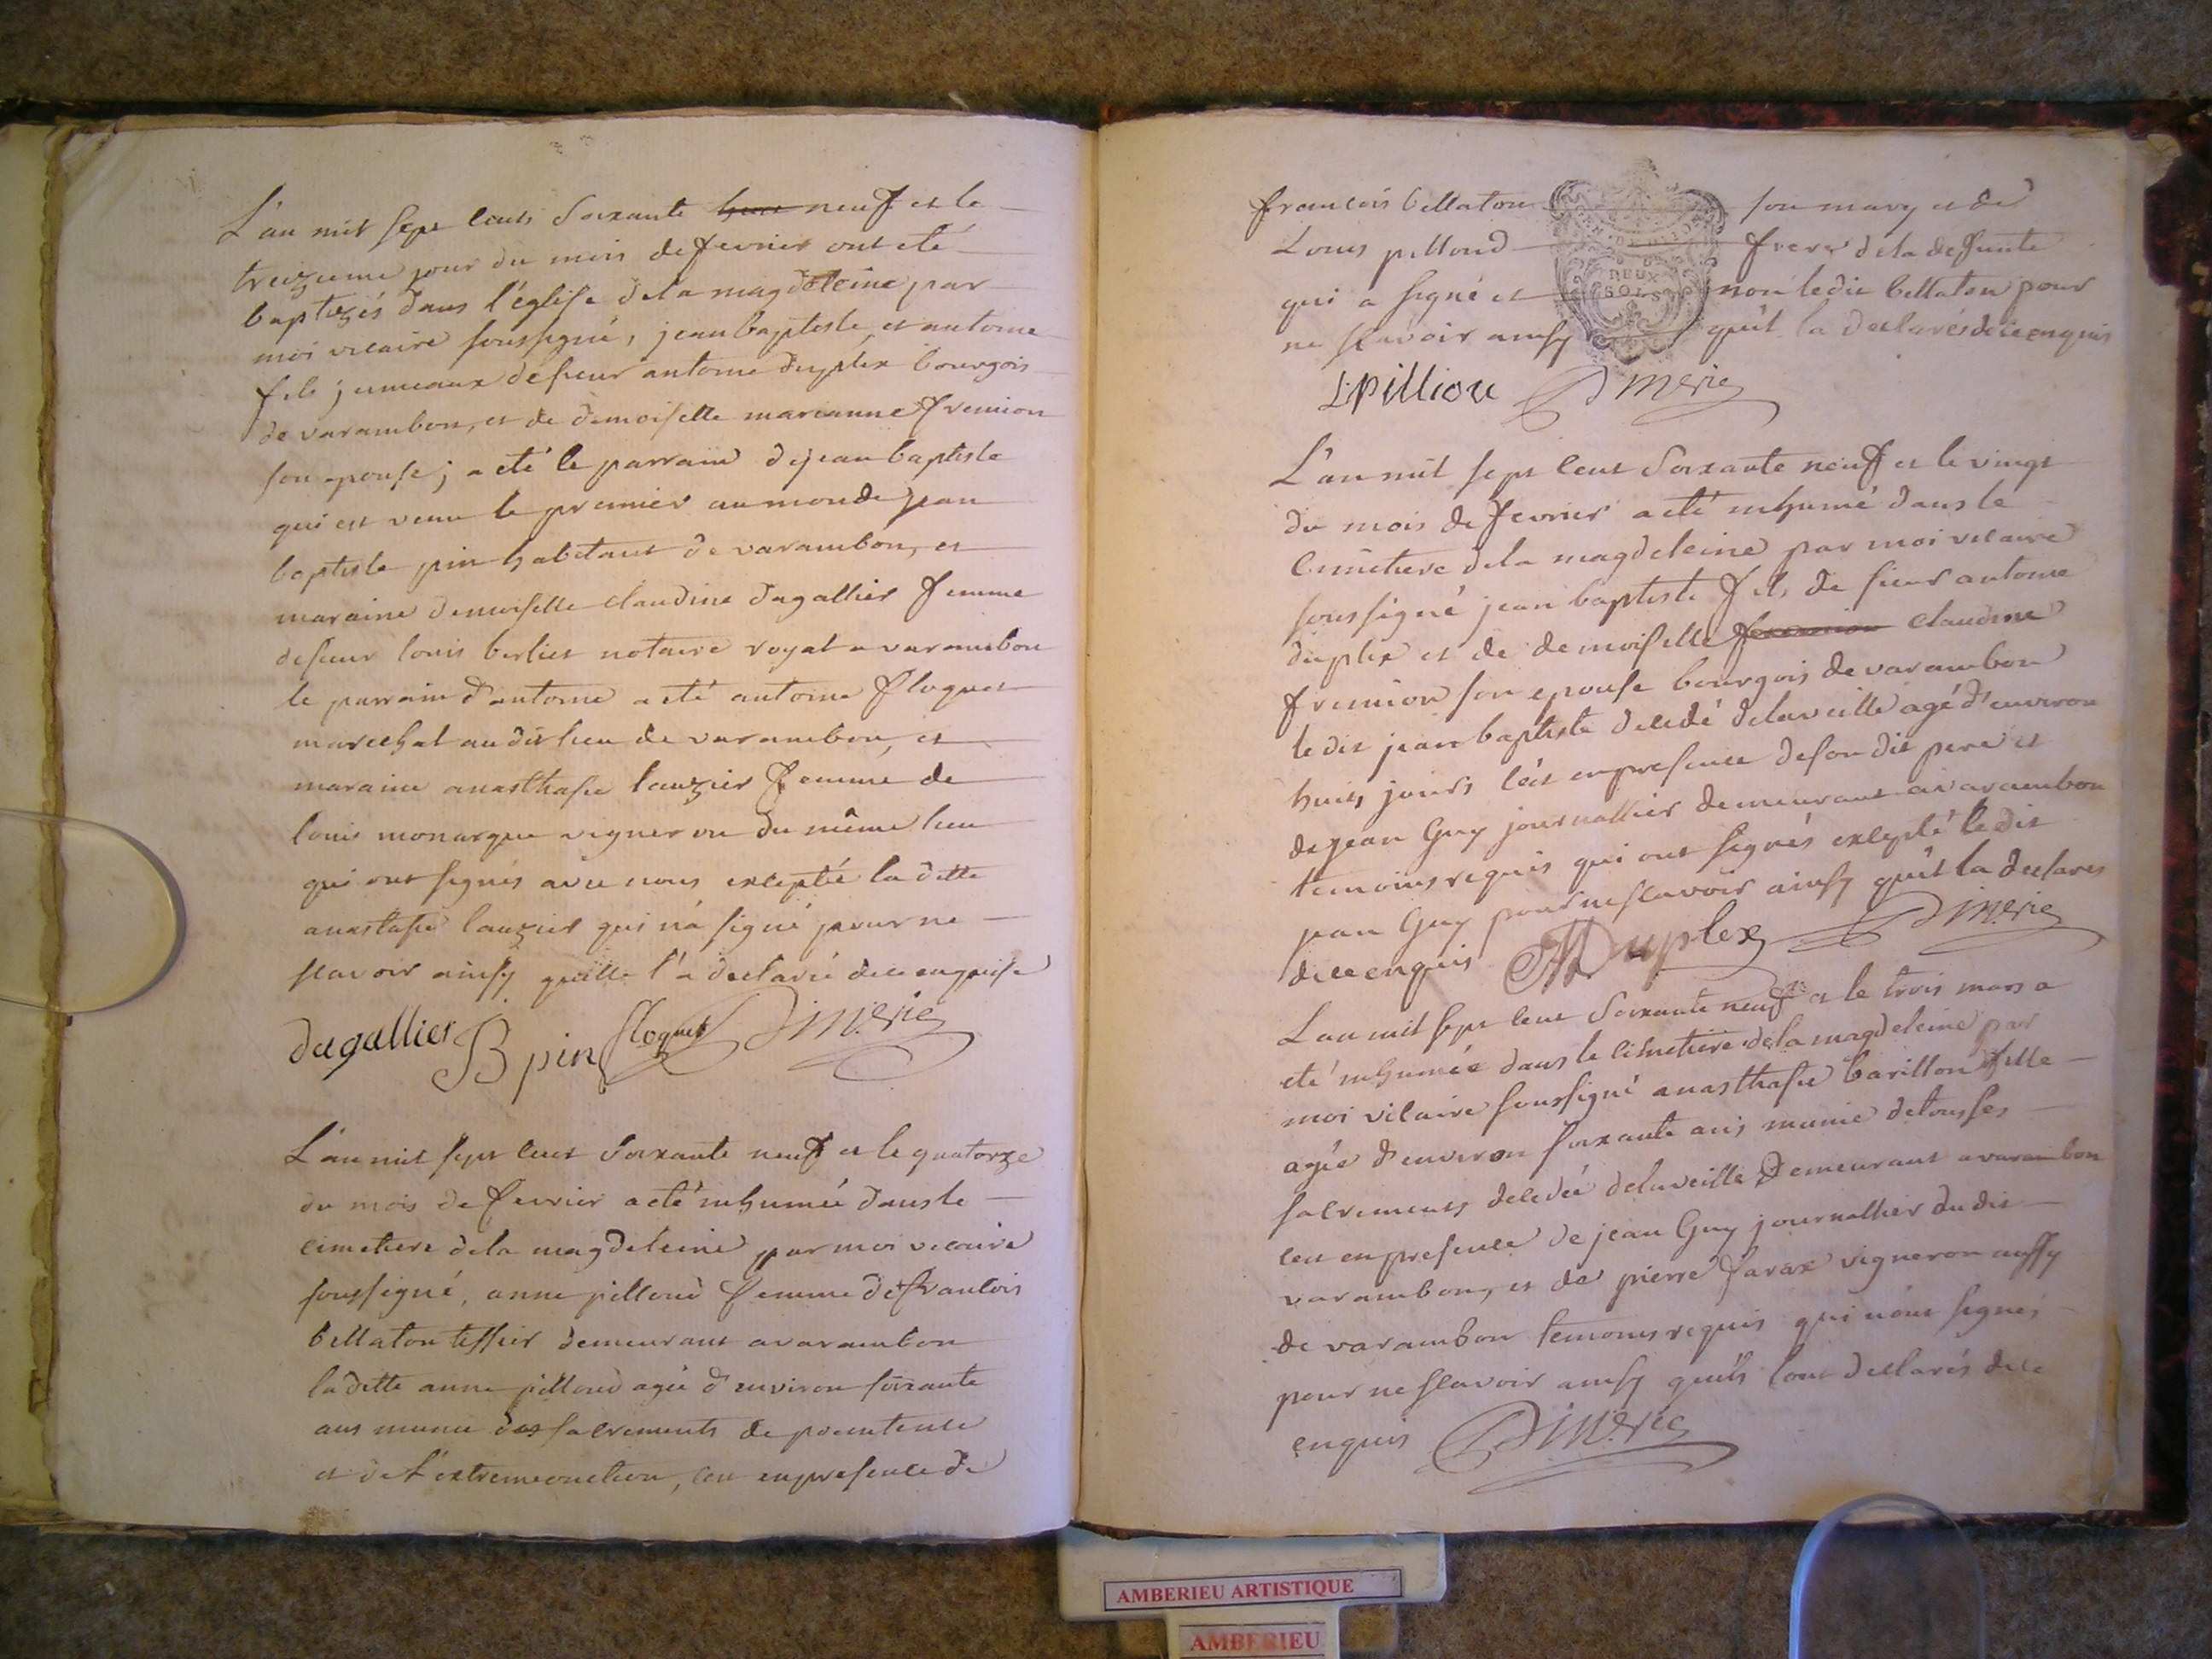 L'an mil sept cents soixante huit neuf et le
treizieme jour du mois de fevrier ont eté
baptizés dans l'église de la magdeleine par
moi vicaire soussigné, jean baptiste, et antoine
fils jumeaux de sieur antoine duplex bourgois
de varambon, et de demoiselle marianne fremion
son epouse; a eté le parrain de jean baptiste
qui est venu le premier au monde jean
baptiste pin habitant de varambon, et
maraine demoiselle claudine dagallier femme
de sieur louis berlier notaire royal a varambon
le parrain d'antoine a eté antoine floquet
marechal au dit lieu de varambon, et
maraine anasthasie lauzier femme de
louis monarque vigneron du même lieu
qui ont signés avec nous excepté la ditte
anastasie lauzier qui n'a signé pour ne
scavoir ainsy qu'elle l'a declaré de ce enquise
dagallier B pin floquet Dimerie
L'an mil sept cent soixante neuf et le quatorze
du mois de fevrier a eté inhumée dans le
cimetiere de la magdeleine par moi vicaire
soussigné, anne pilloud femme de francois
bellaton tessier demeurant a varambon
la ditte anne pilloud agée d'environ soixante
ans munie des sacrements de penitence
et de l'extremeonction, ceci en presence de
francois bellaton son mary et de
Louis pilloud frere de la deffunte
DEUX
SOLS
qui a signé et non ledit bellaton pour
ne scavoir ainsy qu'il la declarés de ce enquis
L pilliou Dimerie
L'an mil sept cent soixante neuf et le vingt
du mois de fevrier a eté inhumé dans le
cimetiere de la magdeleine par moi vicaire
soussigné jean baptiste fils de sieur antoine
duplex et de demoiselle fremion claudine
fremion son epouse bourgois de varambon
le dit jean baptiste decedé de la veille agé d'environ
huits jours ceci en presence de son dit pere et
de jean Guy journallier demeurant a varambon
temoins requis qui ont signés excepté le dit
jean Guy pour ne scavoir ainsy qu'il la declarés
de ce enquis Duplex Dimerie
L'an mil sept cent soixante neuf et le trois mars a
eté inhumée dans le cimetiere de la magdeleine par
moi vicaire soussigné anasthasie barillon fille
agée d'environ soixante ans munie de tous ses
sacrements decedée de la veille demeurant a varambon
ceci en presence de jean Guy journallier du dit
varambon, et de pierre farax vigneron aussy
de varambon temoins requis qui n'ont signés
pour ne scavoir ainsy qu'ils l'ont declarés de ce
enquis Dimerie
AMBERIEU ARTISTIQUE
AMBERIEU